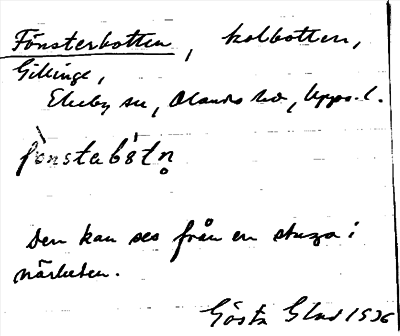 Fönsterbotten, kolbotten,
Gillinge,
Ekeby sn, Olands hd, Upps. l.
fönstabåtn̥
Den kan ses från en stuga i
närheten.
Gösta Glad 1936